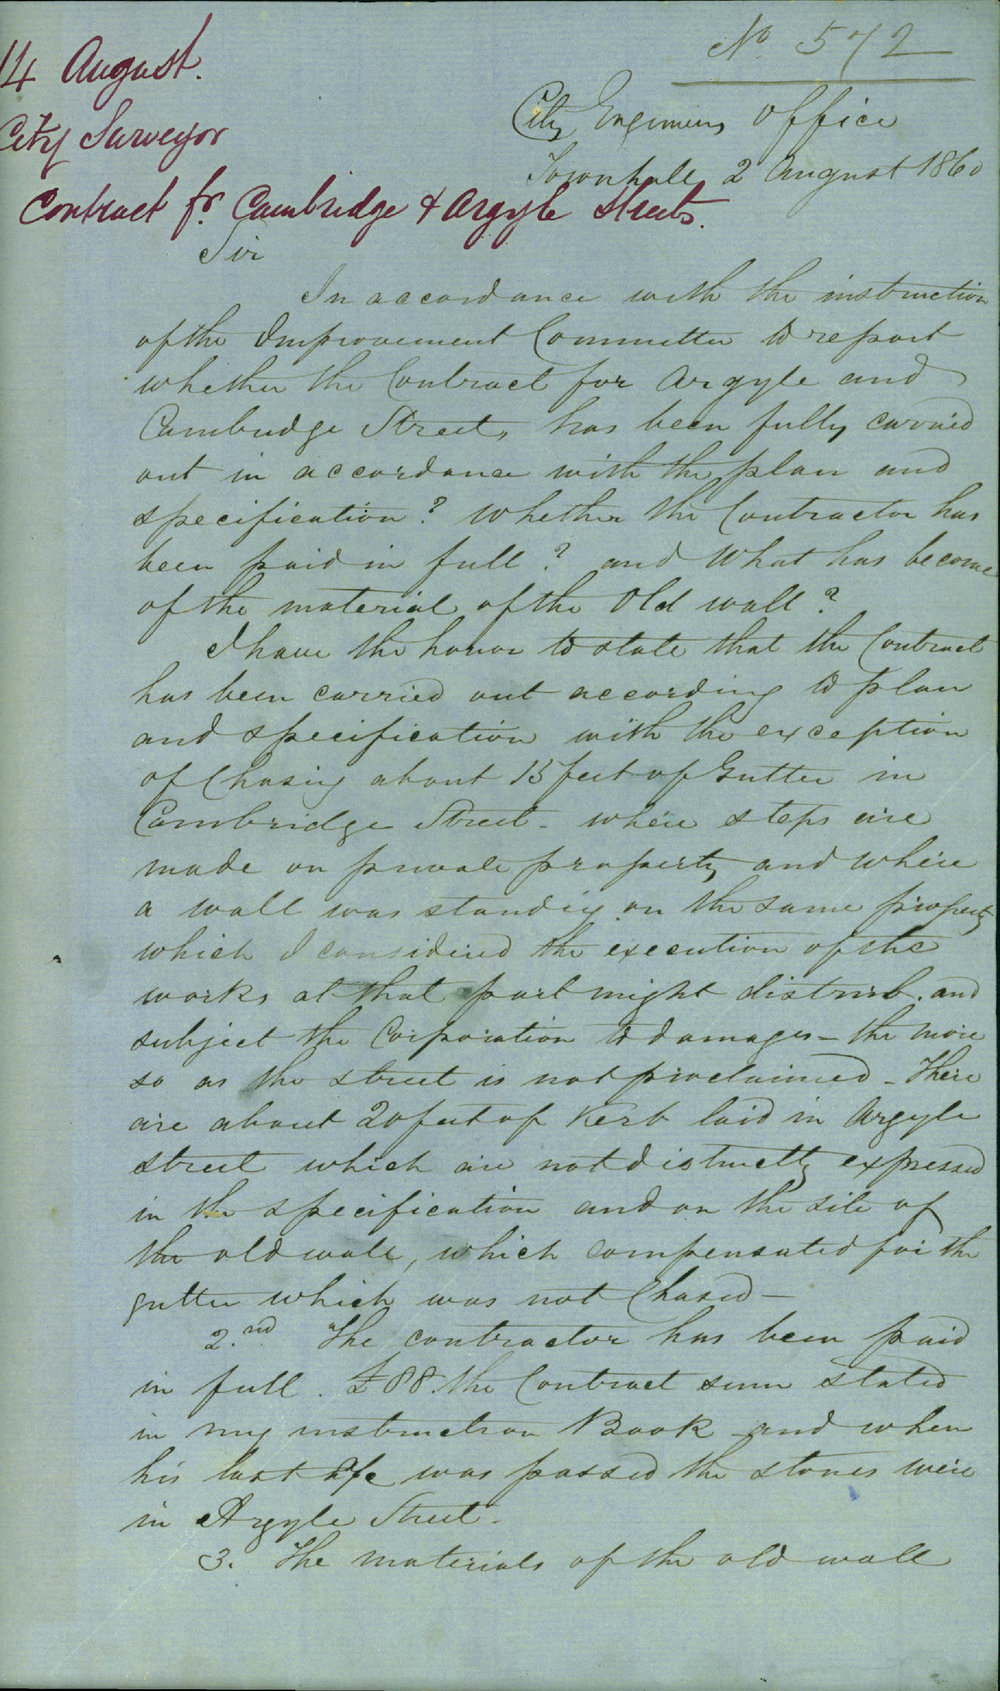 No 572
14 August.
City Surveyor
Contract for Cambridge & Argyle Streets.
City Engineers Office
Townhall 2 August 1860
Sir
In accordance with the instruction
of the Improvement Committee to report
whether the Contract for Argyle and
Cambridge Streets has been fully carried
out in accordance with the plan and
specification? Whether the Contractor has
been paid in full? and What has become
of the material of the Old wall?
I have the honor to state that the Contract
has been carried out according to plan
and specification with the exception
of Chasing about 15 feet of Gutter in
Cambridge Street - where steps are
made on private property and where
a wall was standing on the same property
which I considered the execution of the
works at that part might disturb. and
subject the Corporation to damages - the more
so as the street is not proclaimed - There
are about 20 feet of Kerb laid in Argyle
street which are not distinctly expressed
in the specification and on the site of
the old wall, which compensated for the
gutter which was not Chased -
2nd The contractor has been paid
in full. £88. the Contract sum stated
in my instruction Book - and when
his last was passed the stones were
in Argyle Street -
3. The materials of the old wall